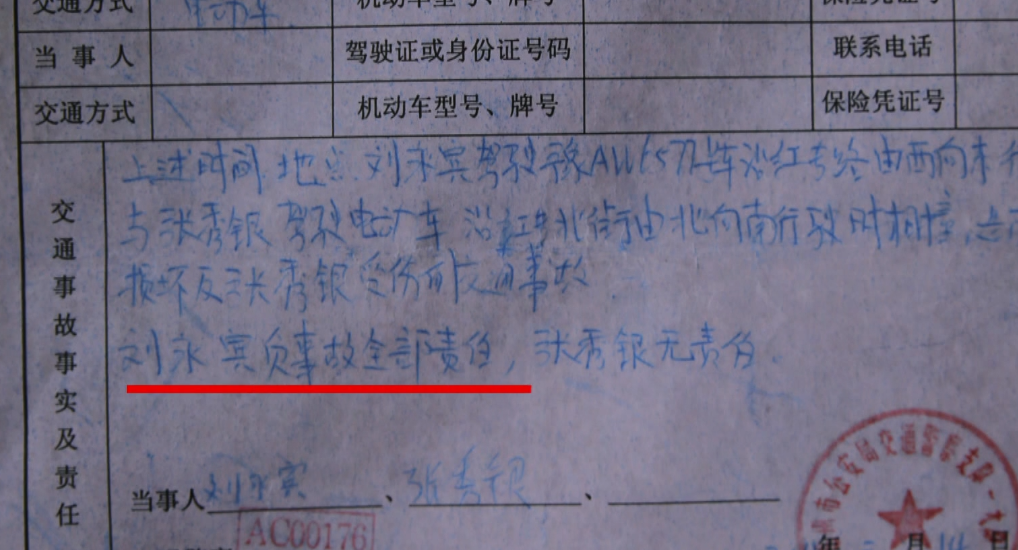 交通方式 电动车 机动车型号、牌号 保险凭证号
当事人 驾驶证或身份证号码 联系电话
交通方式 机动车型号、牌号 保险凭证号
交通事故事实及责任
上述时间、地点 刘永宾驾驶豫AW6572车沿红专路由西向东行
与张秀银驾驶电动车沿红专北街由北向南行驶时相撞,造
损坏及张秀银受伤的交通事故
刘永宾负事故全部责任,张秀银无责任.
当事人 刘永宾、张秀银、
AC00176
州市公安局交通警察支队一
年 月 14 日